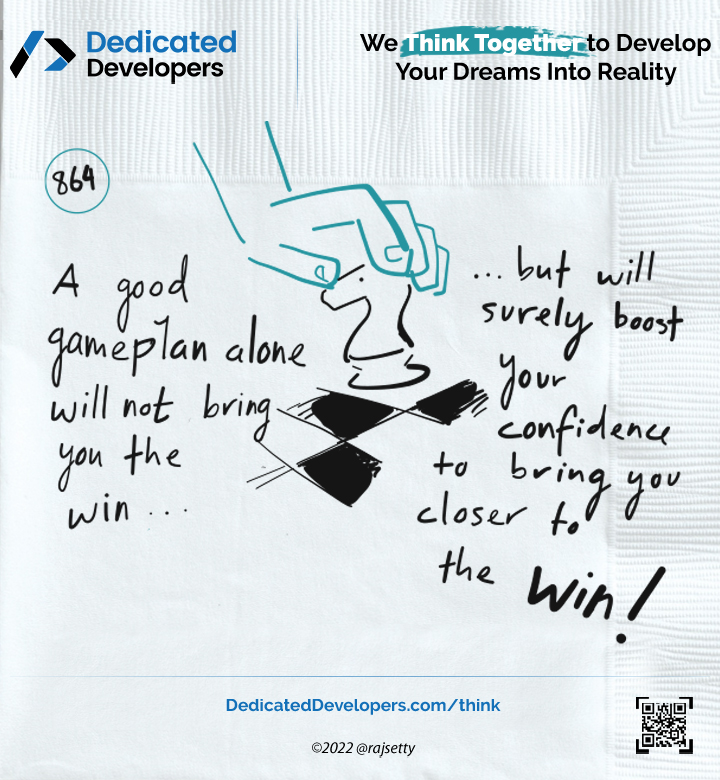 Dedicated
Developers
We Think Together to Develop
Your Dreams Into Reality
864
A good
gameplan alone
will not bring
you the
win ...
... but will
surely boost
your
confidence
to bring you
closer to
the win!
DedicatedDevelopers.com/think
©2022 @rajsetty